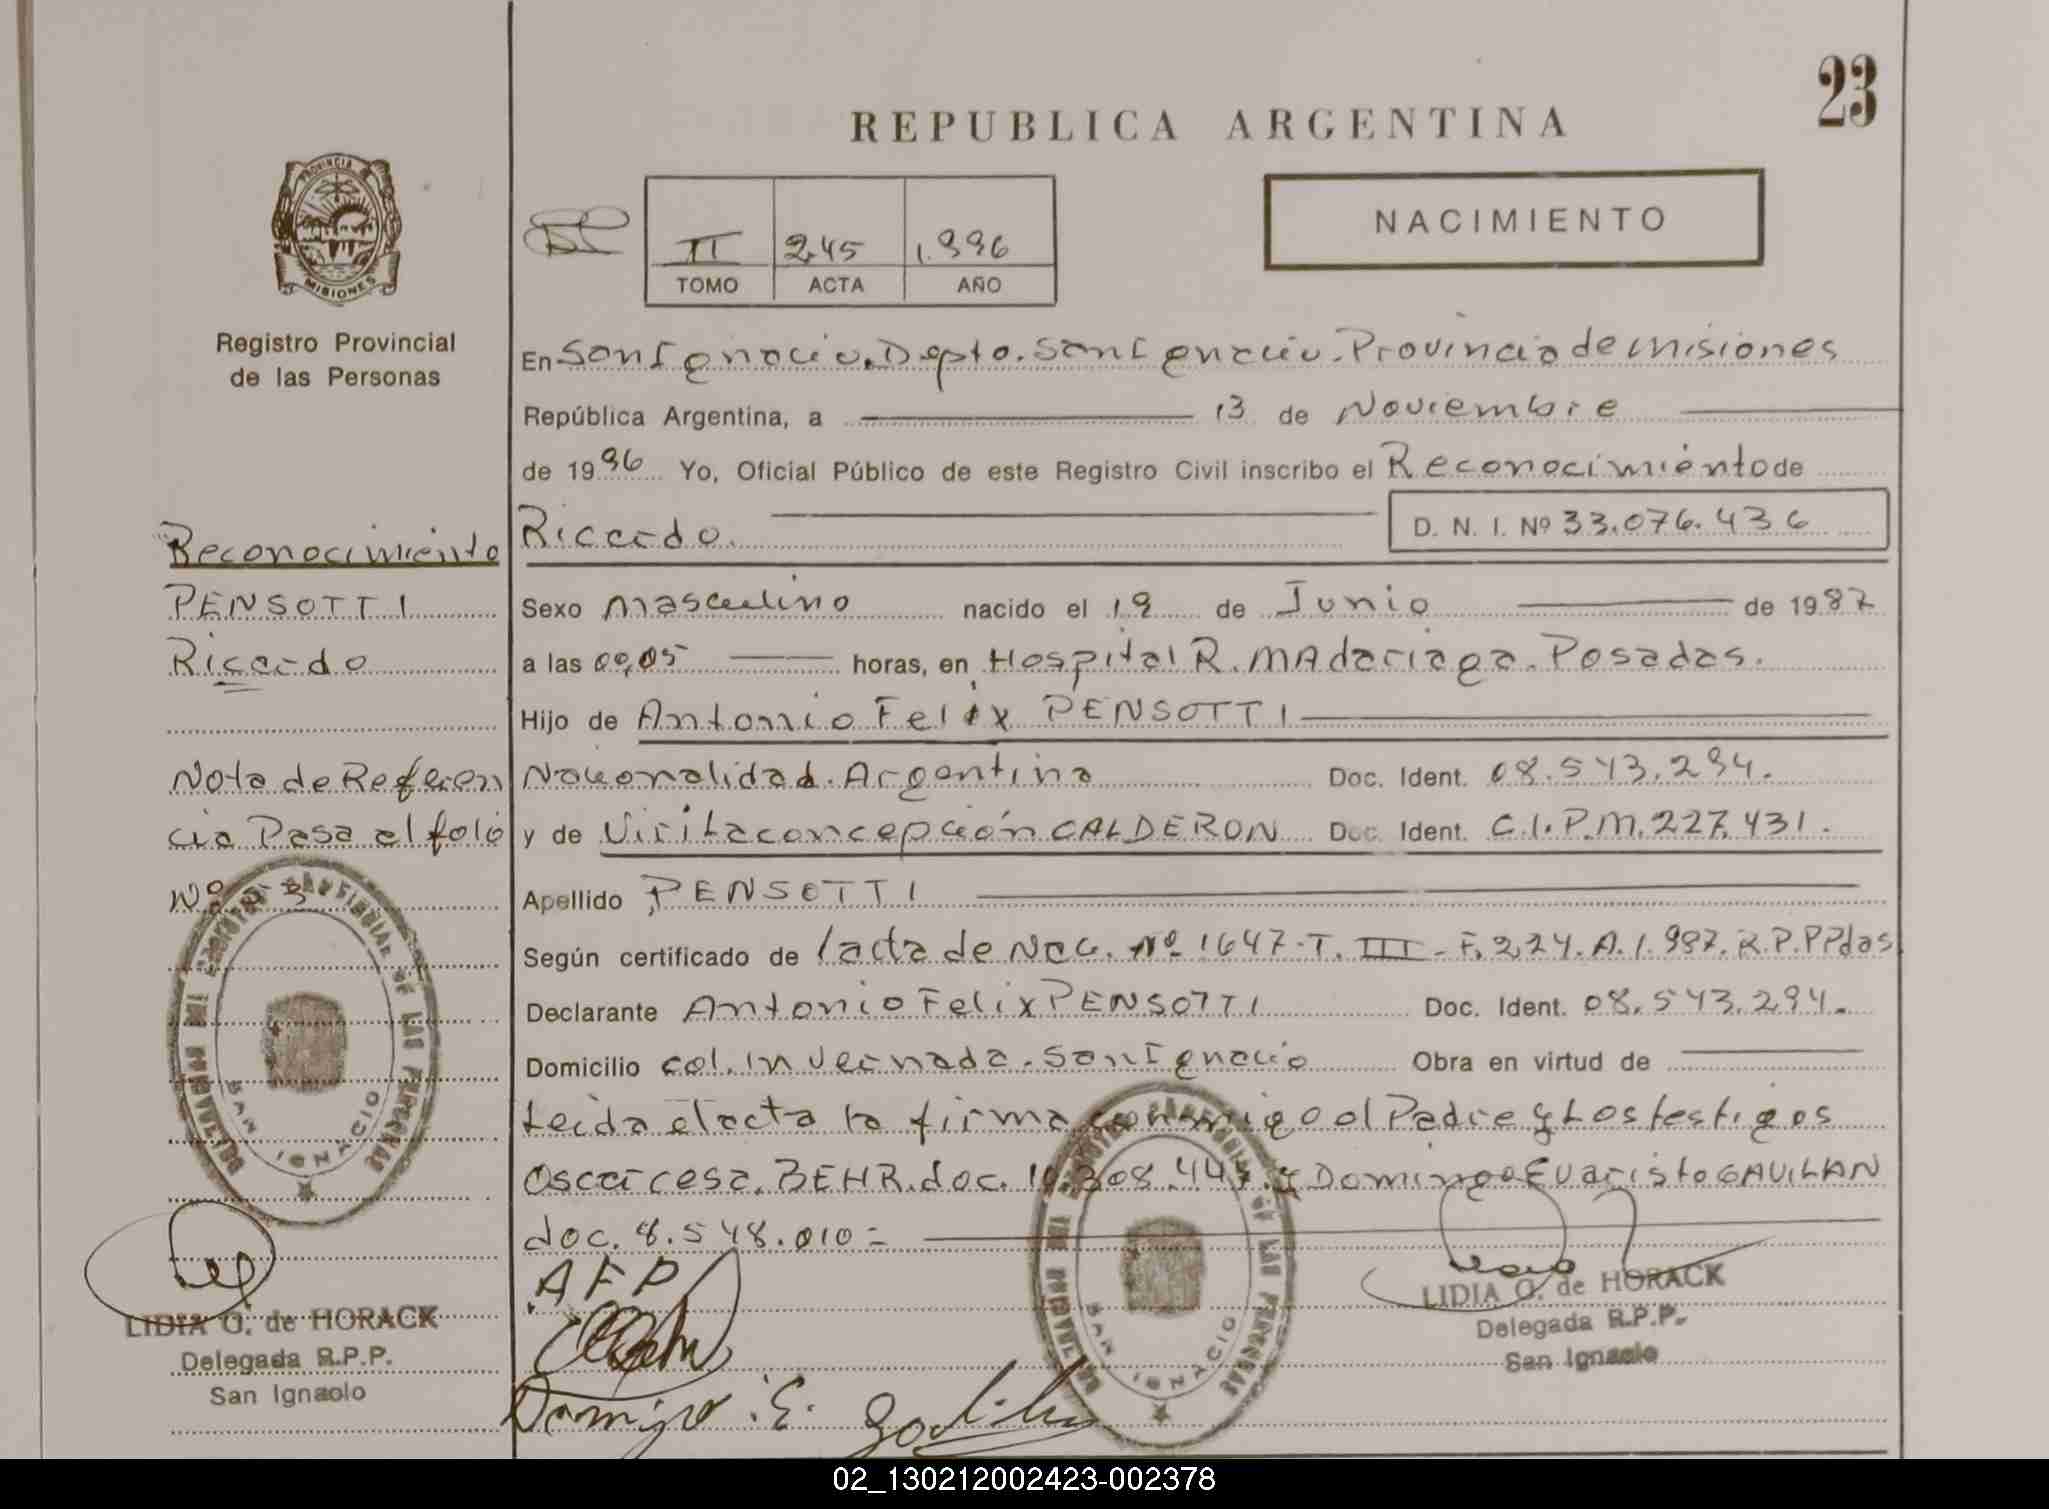 23
REPUBLICA ARGENTINA
PROVINCIA
MISIONES
NACIMIENTO
II 245 1.996
TOMO ACTA AÑO
Registro Provincial
de las Personas
En San Ignacio. Depto. San Ignacio. Provincia de Misiones
República Argentina, a 13 de Noviembre
de 1996 Yo, Oficial Público de este Registro Civil inscribo el Reconocimiento de
Ricardo. D. N. I. Nº 33.076.436
Sexo Masculino nacido el 19 de Junio de 1987
a las 00,05 horas, en Hospital R. MAdariaga. Posadas.
Hijo de Antonio Felix PENSOTTI
Nacionalidad. Argentina Doc. Ident. 08.543.294.
y de Virita concepción CALDERON Doc. Ident. C.I.P.M. 227.431.
Apellido PENSOTTI
Según certificado de /acta de Nac. Nº 1647-T. III-F. 224. A. 1.987. R.P.PPdas
Declarante Antonio Felix PENSOTTI Doc. Ident. 08.543.294.
Domicilio col. invernada. San Ignacio Obra en virtud de
Leida el acta la firma conmigo el Padre y Los testigos
Oscar cesar. BEHR. doc. y Domingo Evaristo GAVILAN
doc. 8.548.010=
AFP
Domingo E.
LIDIA G. de HORACK
Delegada R.P.P.
San Ignacio
Reconocimiento
PENSOTTI
Ricardo
Nota de Referen
cia Pasa al folio
Nº
SAN IGNACIO
LIDIA G. de HORACK
Delegada R.P.P.
San Ignacio
SAN IGNACIO
02_130212002423-002378